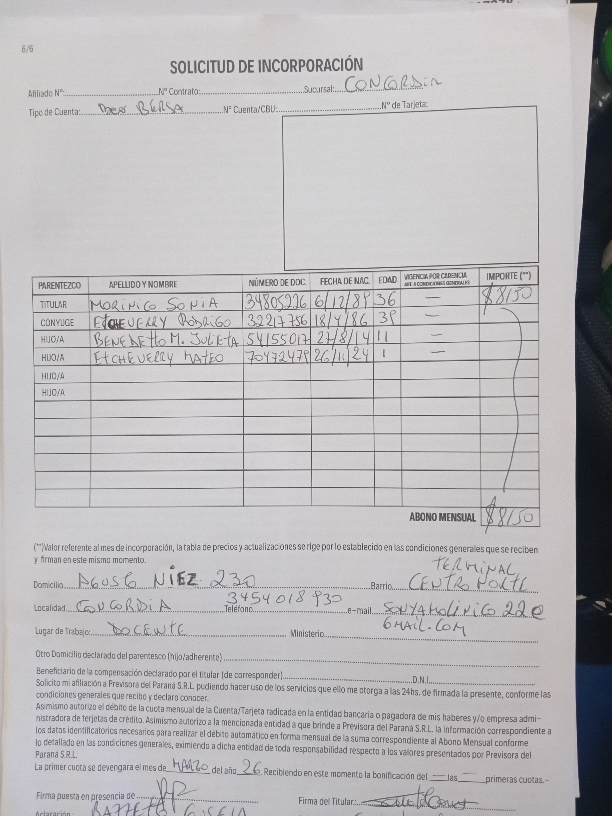 6/6
SOLICITUD DE INCORPORACIÓN
Afiliado N°: N° Contrato: Sucursal: CONCORDIA
Tipo de Cuenta: BERSA N° Cuenta/CBU: N° de Tarjeta:
PARENTEZCO APELLIDO Y NOMBRE NÚMERO DE DOC. FECHA DE NAC. EDAD VIGENCIA POR CARENCIA ART. 4 CONDICIONES GENERALES IMPORTE (**)
TITULAR MORINICO SONIA 34805226 6/12/89 36 — $8150
CÓNYUGE ETCHEVERRY RODRIGO 32217756 18/4/86 39 —
HIJO/A BENEDETTO M. JULIETA 54155017 27/8/14 11 —
HIJO/A ETCHEVERRY MATEO 70472479 26/11/24 1 —
HIJO/A
HIJO/A
ABONO MENSUAL $8150
(**)Valor referente al mes de incorporación, la tabla de precios y actualizaciones se rige por lo establecido en las condiciones generales que se reciben
y firman en este mismo momento.
TERMINAL
Domicilio AGOSTO NIEZ 230 Barrio CENTRO NORTE
Localidad CONCORDIA Teléfono 3454018930 e-mail SONYAMOLINICO22@
GMAIL.COM
Lugar de Trabajo: DOCENTE Ministerio:
Otro Domicilio declarado del parentesco (hijo/adherente)
Beneficiario de la compensación declarado por el titular (de corresponder) D.N.I.
Solicito mi afiliación a Previsora del Paraná S.R.L. pudiendo hacer uso de los servicios que ello me otorga a las 24hs. de firmada la presente, conforme las
condiciones generales que recibo y declaro conocer.
Asimismo autorizo el débito de la cuota mensual de la Cuenta/Tarjeta radicada en la entidad bancaria o pagadora de mis haberes y/o empresa admi-
nistradora de terjetas de crédito. Asimismo autorizo a la mencionada entidad a que brinde a Previsora del Paraná S.R.L. la información correspondiente a
los datos identificatorios necesarios para realizar el débito automático en forma mensual de la suma correspondiente al Abono Mensual conforme
lo detallado en las condiciones generales, eximiendo a dicha entidad de toda responsabilidad respecto a los valores presentados por Previsora del
Paraná S.R.L.
La primer cuota se devengara el mes de MARZO del año 26. Recibiendo en este momento la bonificación del — las — primeras cuotas.-
Firma puesta en presencia de Firma del Titular:
Aclaración: